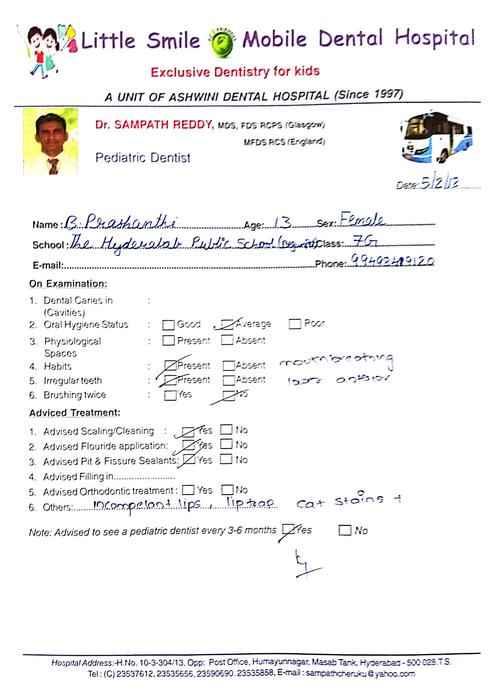 Little Smile Mobile Dental Hospital
Exclusive Dentistry for kids
A UNIT OF ASHWINI DENTAL HOSPITAL (Since 1997)
Dr. SAMPATH REDDY, MDS, FDS RCPS (Glasgow)
MFDS RCS (England)
Pediatric Dentist
Date: 5/2/13
Name: B. Prashanthi Age: 13 Sex: Female
School: The Hyderabab Public School Class: 7G
E-mail: Phone:
On Examination:
1. Dental Caries in :
(Cavities)
2. Oral Hygiene Status : Good Average Poor
3. Physiological : Present Absent
Spaces
4. Habits : Present Absent mouthbreathing
5. Irregular teeth : Present Absent
6. Brushing twice : Yes No
Adviced Treatment:
1. Advised Scaling/Cleaning : Yes No
2. Advised Flouride application: Yes No
3. Advised Pit & Fissure Sealants: Yes No
4. Advised Filling in
5. Advised Orthodontic treatment : Yes No
6. Others: Incompetant lips, liptrap stains +
Note: Advised to see a pediatric dentist every 3-6 months Yes No
Hospital Address:-H.No. 10-3-304/13, Opp: Post Office, Humayunnagar, Masab Tank, Hyderabad - 500 028.T.S.
Tel : (C) 23537612, 23535656, 23590690. 23535858, E-mail : sampathcheruku@yahoo.com